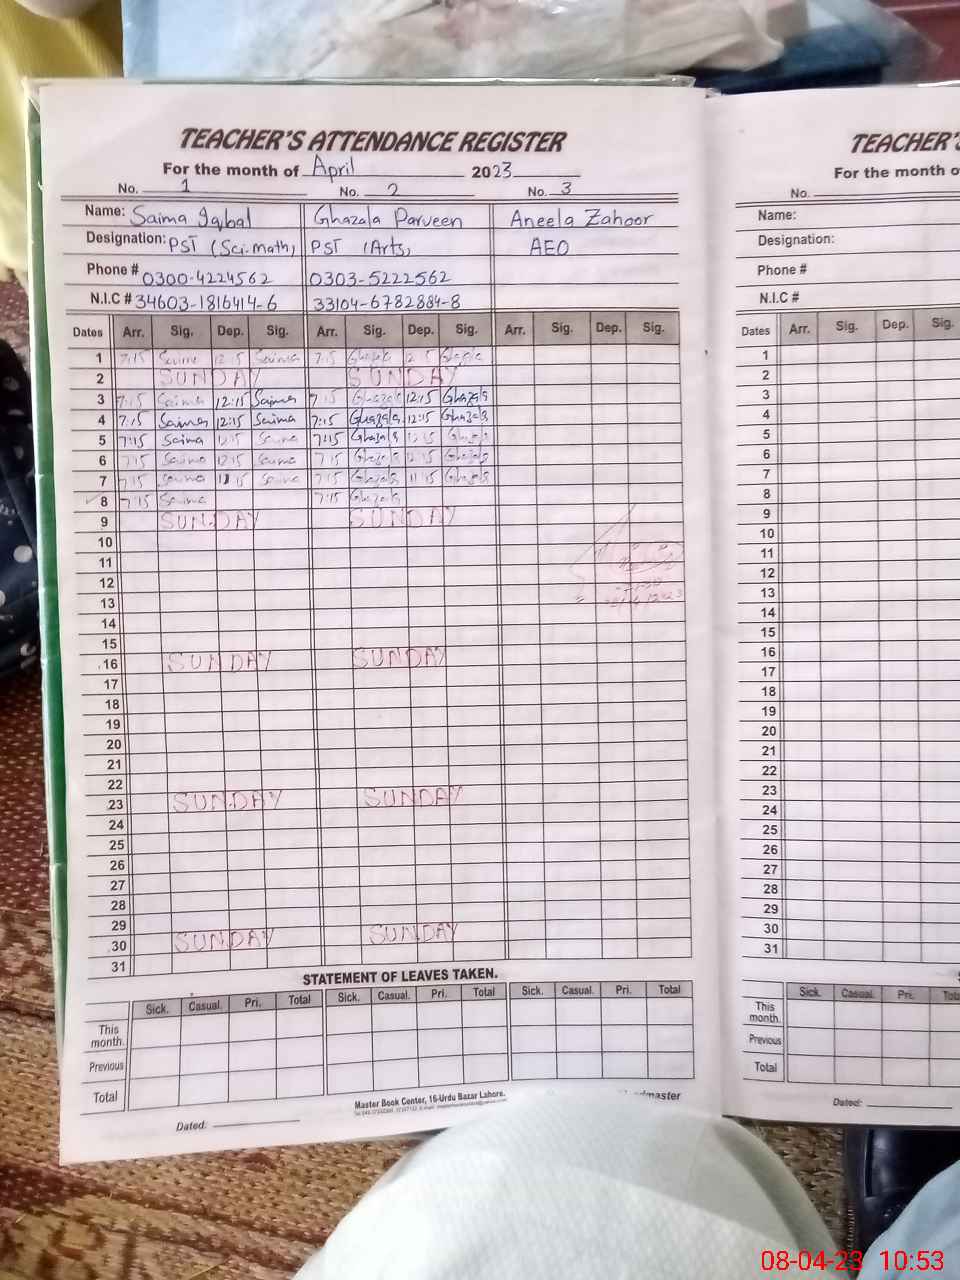 TEACHER'S ATTENDANCE REGISTER
For the month of April 2023
No. 1 No. 2 No. 3
Name: Saima Iqbal Ghazala Parveen Aneela Zahoor
Designation: PST (Sci-math) PST (Arts) AEO
Phone # 0300-4224562 0303-5222562
N.I.C # 34603-1816414-6 33104-6782884-8
Dates Arr. Sig. Dep. Sig. Arr. Sig. Dep. Sig. Arr. Sig. Dep. Sig.
1 7:15 Saima 12:15 Saima 7:15 Ghazala 12:15 Ghazala
2 SUNDAY SUNDAY
3 7:15 Saima 12:15 Saima 7:15 Ghazala 12:15 Ghazala
4 7:15 Saima 12:15 Saima 7:15 Ghazala 12:15 Ghazala
5 7:15 Saima 12:15 Saima 7:15 Ghazala 12:15 Ghazala
6 7:15 Saima 12:15 Saima 7:15 Ghazala 12:15 Ghazala
7 7:15 Saima 11:15 Saima 7:15 Ghazala 11:15 Ghazala
8 7:15 Saima 7:15 Ghazala
9 SUNDAY SUNDAY
10
11
12
13
14
15
16 SUNDAY SUNDAY
17
18
19
20
21
22
23 SUNDAY SUNDAY
24
25
26
27
28
29
30 SUNDAY SUNDAY
31
STATEMENT OF LEAVES TAKEN.
Sick. Casual. Pri. Total Sick. Casual. Pri. Total Sick. Casual. Pri. Total
This month.
Previous
Total
Master Book Center, 16-Urdu Bazar Lahore.
Dated:
TEACHER'S
For the month
No.
Name:
Designation:
Phone #
N.I.C #
Dates Arr. Sig. Dep. Sig.
1
2
3
4
5
6
7
8
9
10
11
12
13
14
15
16
17
18
19
20
21
22
23
24
25
26
27
28
29
30
31
Sick. Casual. Pri.
This month.
Previous
Total
Dated:
08-04-23 10:53